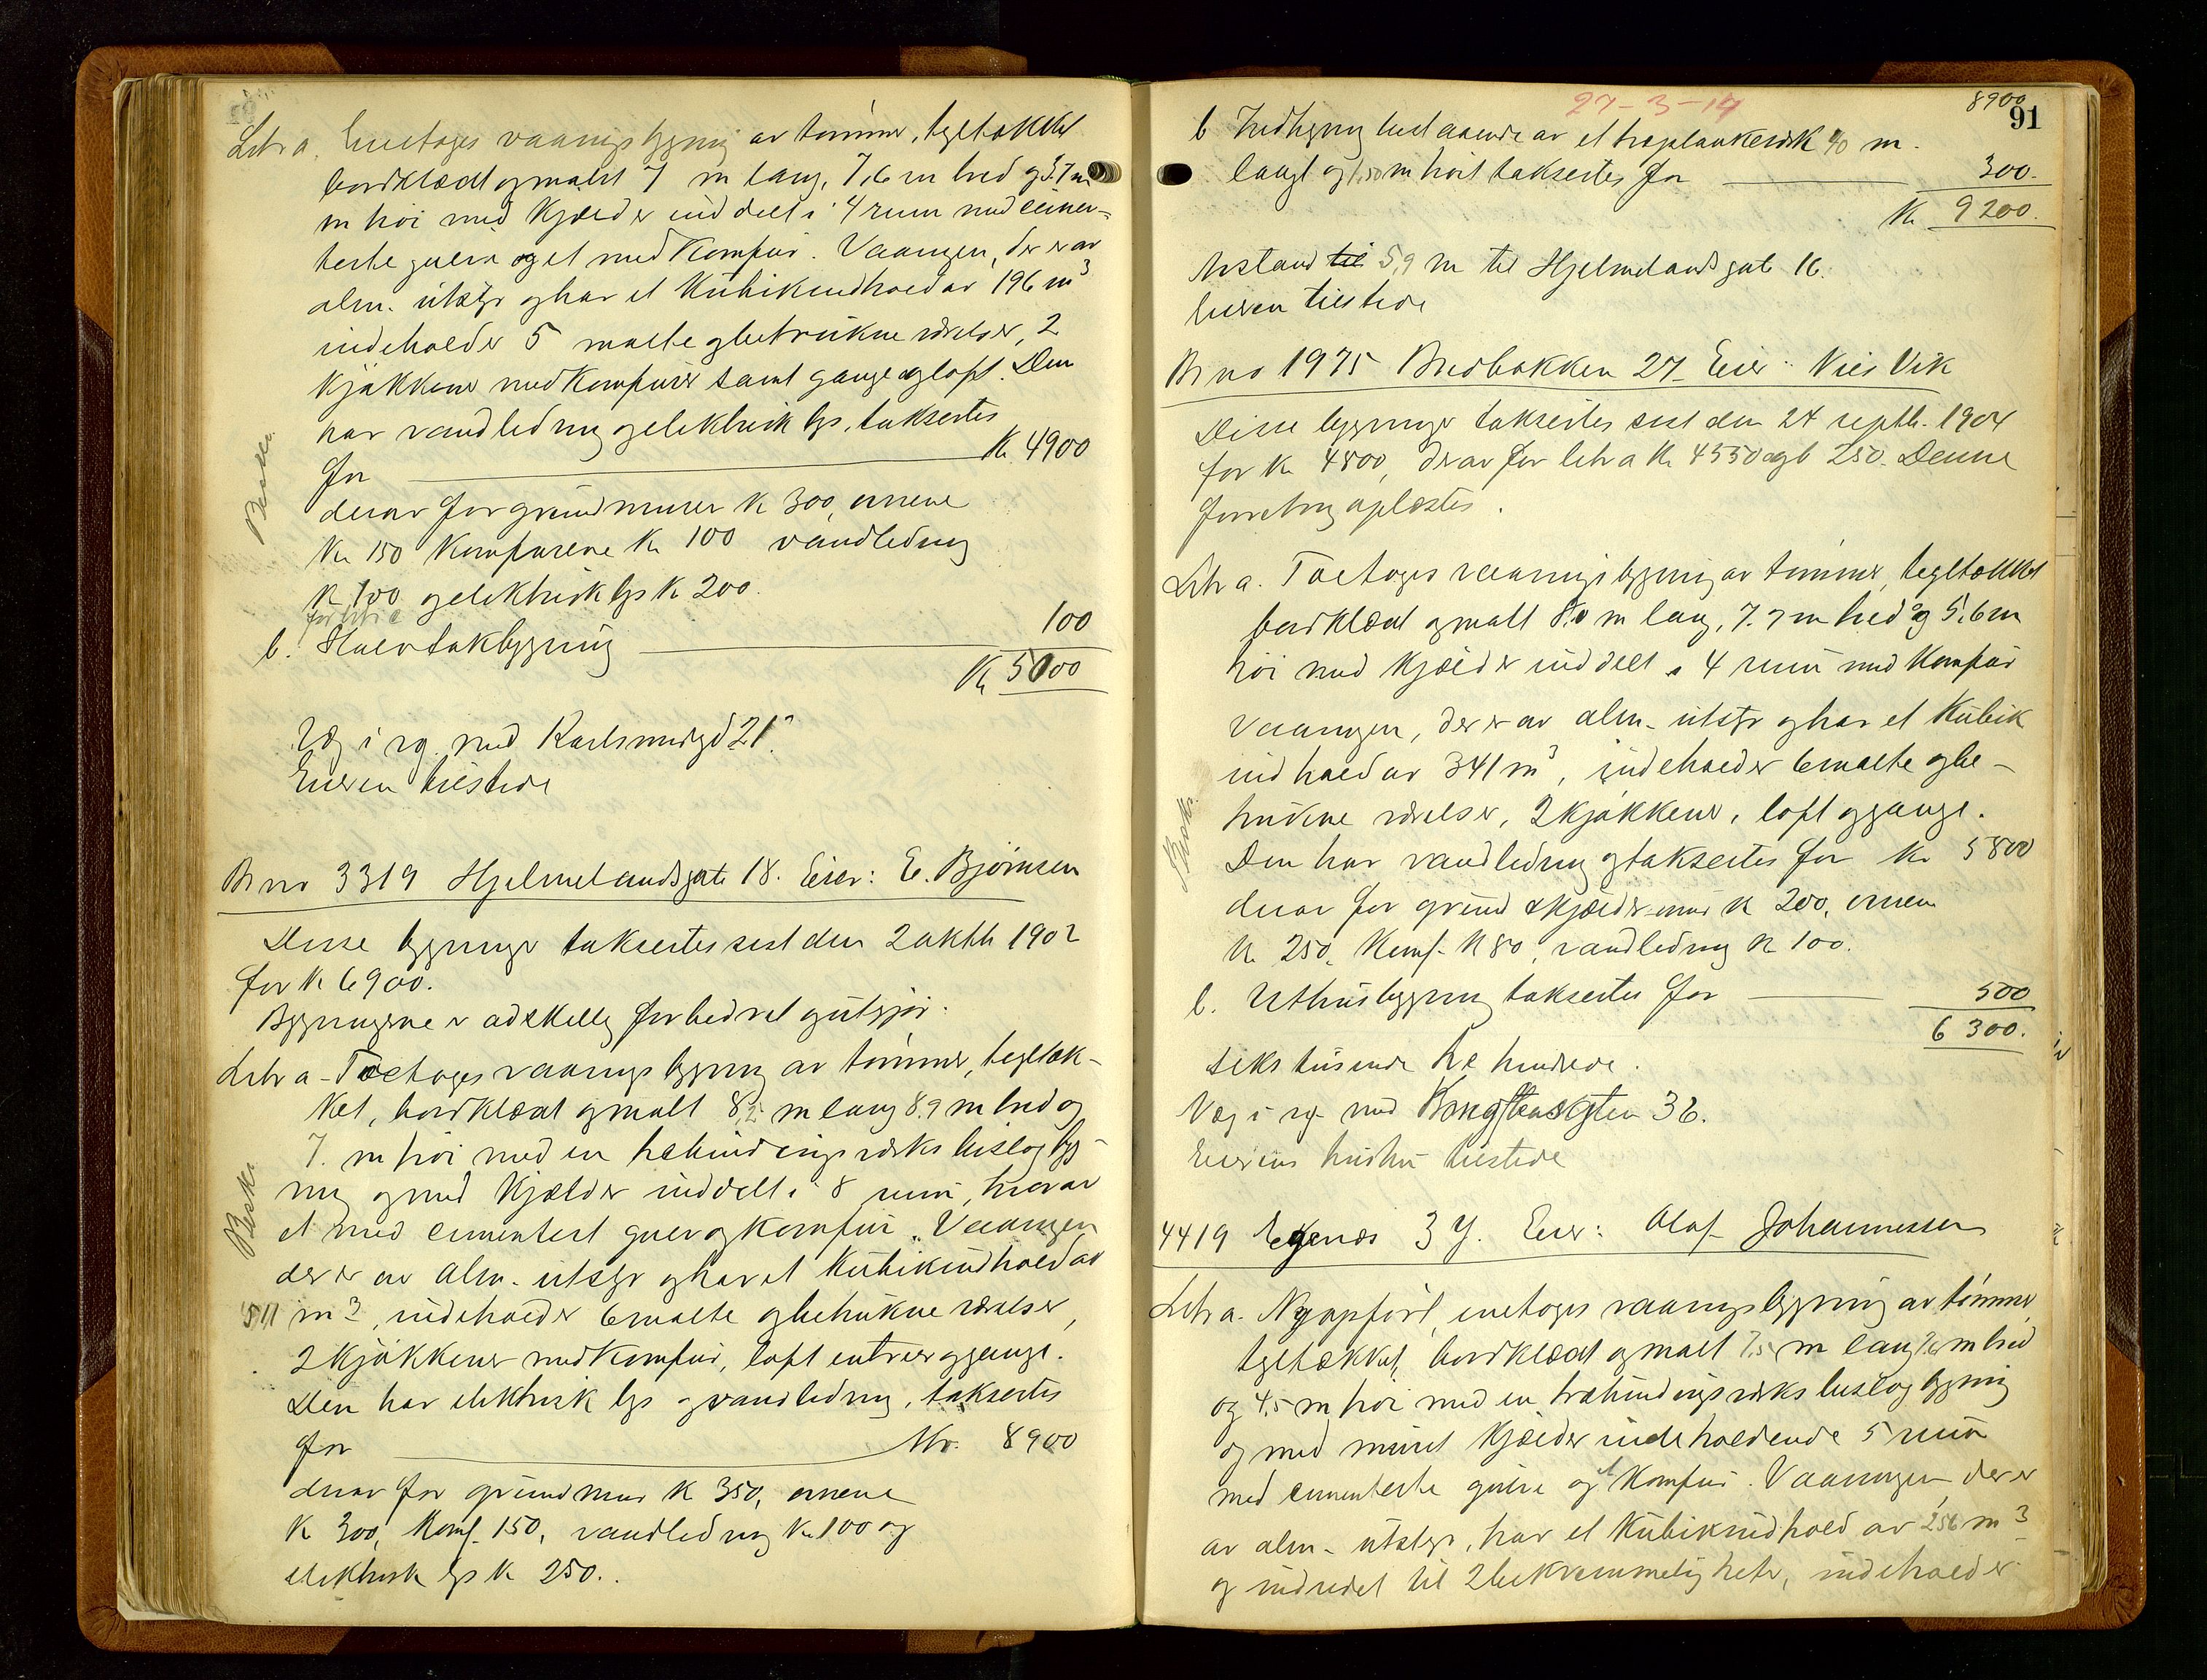 Litr a. Enetages vaaningsbygning av tømmer, tegltækket
bordklædt og malt 7 m lang, 7,6 m bred og 3.7 m
m høi med kjælder inddelt i 4 rum med cemen-
terte gulve og et med komfur. Vaaningen, der er av
alm. utstyr og har et kubikindhold av 196 m3
indeholder 5 malte og betrukne værelser, 2
kjøkkener med komfurer samt gange og loft. Den
har vandledning og elektrisk lys, taksertes
for Kr 4900
derav for grundmurer kr 300, ovnene
Kr 150 komfurene kr 100 vandledning
kr 100 og elektrisk lys kr 200.
for litr a
b. Halvtakbygning 100
Kr 5000
Væg i væg med Karlsmindegd 21.
Eieren tilstede
Br no 3319 Hjelmelandsgate 18. Eier: E. Bjørnsen
Disse bygninger taksertes sist den 2 oktb 1902
for kr 6900.
Bygningerne er adskillig forbedret og utgjør.
Litr a - Toetages vaaningsbygning av tømmer, tegltæk-
ket, bordklædt og malt 8,2 m lang 8.9 m bred og
7. m høi med en træbindingsverks bislagbyg-
ning og med kjælder inddelt i 8 rum, hvorav
et med cementert gulv og komfur. Vaaningen
der er av alm. utstyr og har et kubikindhold av
511 m3, indeholder 6 malte og betrukne værelser,
2 kjøkkener med komfur, loft entreer og gange.
Den har elektrisk lys og vandledning, taksertes
for Kr. 8900
derav for grundmur kr 350, ovnene
kr 300, komf. 150, vandledning kr 100 og
elektrisk lys kr 250.
Besk.
27-3-14
8900
91
b Indhegning bestaaende av et træplankeværk 40 m.
langt og 1,50 m høit taksertes for 300.
Kr 9200.
Avstand til 5,9 m til Hjelmelandsgate 16.
Eieren tilstede
Br no 1975 Bredbakken 27 Eier: Nils Vik
Disse bygninger taksertes sist den 24 septb. 1904
for kr 4800, derav for litr a kr 4550 og b 250. Denne
forretning oplæstes.
Litr a. Toetages vaaningsbygning av tømmer, tegltækket
bordklædt og malt 8.0 m lang, 7.7 m bred og 5.6 m
høi med kjælder inddelt i 4 rum med komfur
Vaaningen, der er av alm. utstyr og har et kubik
indhold av 341 m3, indeholder 6 malte og be-
trukne værelser, 2 kjøkkener, loft og gange.
Den har vandledning og taksertes for kr 5800
derav for grund & kjældermur kr 200, ovnen
kr 250, komf. kr 80, vandledning kr 100.
b. Uthusbygning taksertes for 500
6 300.
seks tusende tre hundrede.
Væg i væg med Kongstensgten 36.
Eierens hustru tilstede
Besk.
4419 Egenæs 3 y. Eier: Olaf Johannessen
Litr a. Nyopført, enetages vaaningsbygning av tømmer
tegltækket, bordklædt og malt 7,5 m lang m bred
og 4,5 m høi med en træbindingsverks bislagbygning
og med muret kjælder indeholdende 5 rum
med cementerte gulve og et komfur. Vaaningen, der er
av alm. utstyr, har et kubikindhold av 256 m3
og indredet til 2 bekvemmeligheter, indeholder